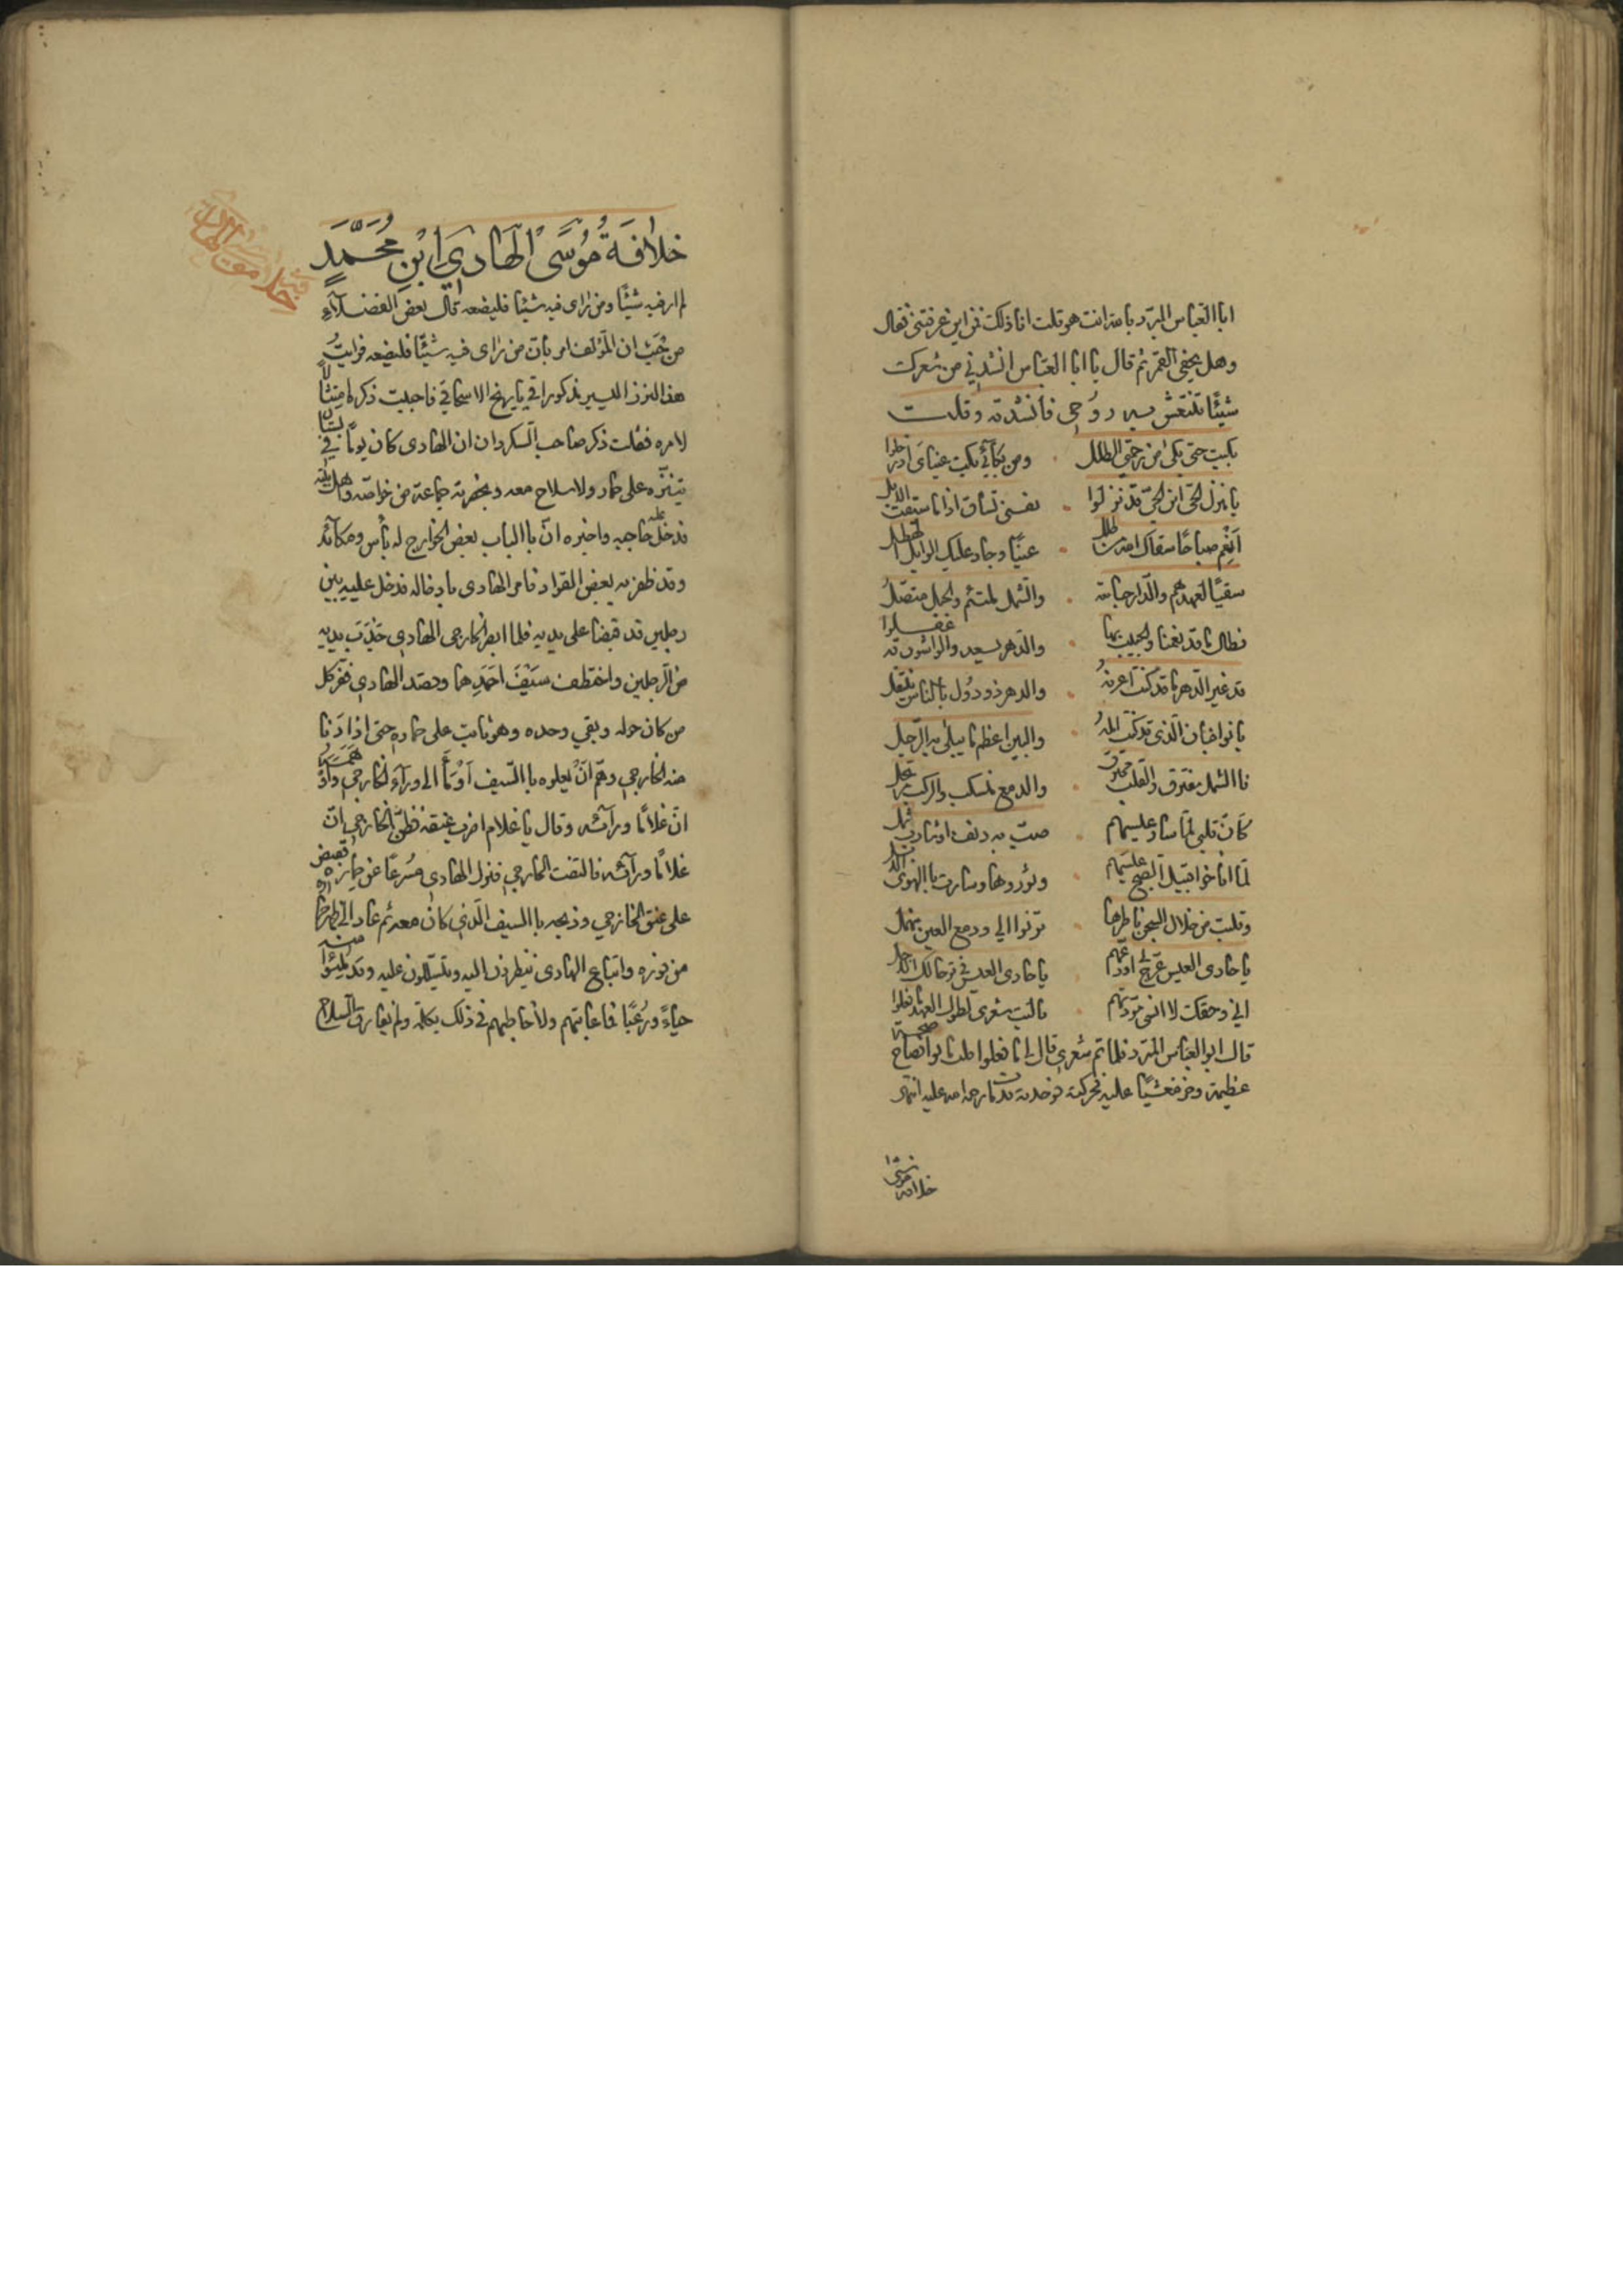 ابا العباس المبرد بالله انت هو قلت انا ذلك فمن اين عرفتني فقال
وهل يخفى القمر ثم قال يا ابا العباس انشدني من شعرك
شيئًا تنتعش به روحي فانشدته وقلت
بكيت حتى بكى من رحمتي الطلل ۰ ومن بكائي بكت عيناي اذ رحلوا
يا منزل الحي اين الحي قد نزلوا ۰ نفسي تساق اذا ما سيقت الابل
اَنْعِم صباحًا سقاك الله من طلل ۰ غيثًا وجاد عليك الوابل الهطل
سقيًا لعهدهم والدار جامعة ۰ والشمل ملتئم والحبل متصل
فطال ما قد نعمنا والحبيب بها ۰ والدهر يسعد والواشون قد غفلوا
قد غير الدهر ما قد كنت اعرفه ۰ والدهر ذو دُوَل بالناس ينتقل
بانوا فبان الذي قد كنت آمله ۰ والبين اعظم ما يبلى به الرجل
فالشمل مفترق والقلب محترق ۰ والدمع منسكب والركب مرتحل
كأن قلبي لما سار عيسهم ۰ صبّ به دنف او شارب ثمل
لما اناخوا قبيل الصبح عيسهم ۰ وثوروها وسارت بالهوى الابل
وقلبت من خلال السجف ناظرها ۰ ترنوا الي ودمع العين ينهمل
يا حادي العيس عرج كي اودعهم ۰ يا حادي العيس في ترحالك الاجل
اني وحقك لا انسى مودتهم ۰ يا ليت شعري لطول العهد ما فعلوا
قال ابو العباس المبرد فلما تم شعري قال لي ما فعلوا قلت ماتوا فصاح صيحة
عظيمة وخر مغشيًا عليه فحركته فوجدته قد مات رحمة الله عليه انتهى
خلافة موسى
خِلَافَةُ مُوسَى الْهَادِي ابْنِ مُحَمَّدٍ
خلافة موسى الهادي
لم ار فيه شيئًا ومن راى فيه شيئًا فليضعه قال بعض الفضلاء
من حيث ان المؤلف امر بان من راى فيه شيئًا فليضعه فرايت
هذا النزر اليسير مذكورا في تاريخ الاسحاقي فاحببت ذكره امتثالًا
لامره فقلت ذكر صاحب السكردان ان الهادي كان يومًا في بستان
يتنزه على حمار ولا سلاح معه وبحضرته جماعة من خواصه واهل بيته
فدخل عليه حاجبه واخبره ان بالباب بعض الخوارج له بأس ومكائد
وقد ظفر به بعض القواد فامر الهادي بادخاله فدخل عليه بين
رجلين قد قبضا على يديه فلما ابصر الخارجي الهادي جذب يديه
من الرجلين واختطف سيف احدهما وقصد الهادي ففر كل
من كان حوله وبقي وحده وهو ثابت على حماره حتى اذا دنا
منه الخارجي وهمّ ان يعلوه بالسيف اومأ الى وراء الخارجي واوهمه
ان غلامًا وراءه وقال يا غلام اضرب عنقه فظن الخارجي ان
غلامًا وراءه فالتفت الخارجي فنزل الهادي مسرعًا عن حماره فقبض
على عنق الخارجي وذبحه بالسيف الذي كان معه ثم عاد الى ظهر حماره
من فوره واتباع الهادي ينظرون اليه ويتسللون عليه وقد ملئوا منه
حياءً ورعبًا فما عاتبهم ولا خاطبهم في ذلك بكلمة ولم يفارق السلاح